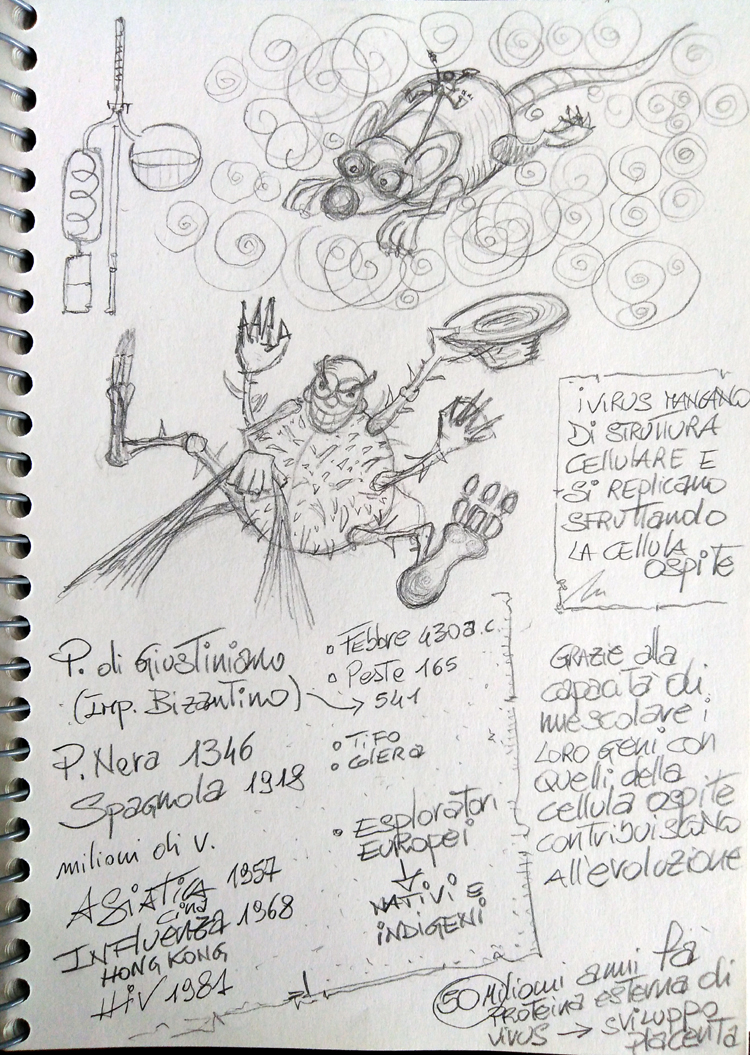 i VIRUS MANCANO
DI STRUTTURA
CELLULARE E
SI REPLICANO
SFRUTTANDO
LA CELLULA
OSPITE
P. di Giustiniano
(IMP. BIZANTINO) → 541
P. Nera 1346
Spagnola 1918
milioni di v.
ASIATICA 1957
CINA
INFLUENZA 1968
HONG KONG
HIV 1981
Febbre 430 a.c.
Peste 165
TIFO
COLERA
ESPLORATORI
EUROPEI
↓
NATIVI E
INDIGENI
GRAZIE alla
capacità di
muescolare i
LORO GENI CON
quelli della
cellula ospite
contribuiscono
All'evoluzione
50 Milioni anni fa
PROTEINA esterna di
VIRUS → sviluppo
placenta